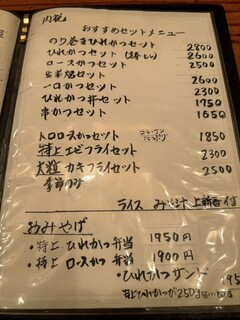 内税
おすすめセットメニュー
のり巻きひれかつセット 2800
ひれかつセット 2600
ロースかつセット 2500
生姜焼セット
一口かつセット 2300
ひれかつ丼セット 1750
串かつセット 1650
トロロースかつセット 1850
特上エビフライセット 2300
大粒カキフライセット 2500
季節のみ
ライス みそ汁 上新香付
おみやげ
・特上ひれかつ弁当 1950円
・特上ロースかつ弁当 1900円
・ひれかつサンド